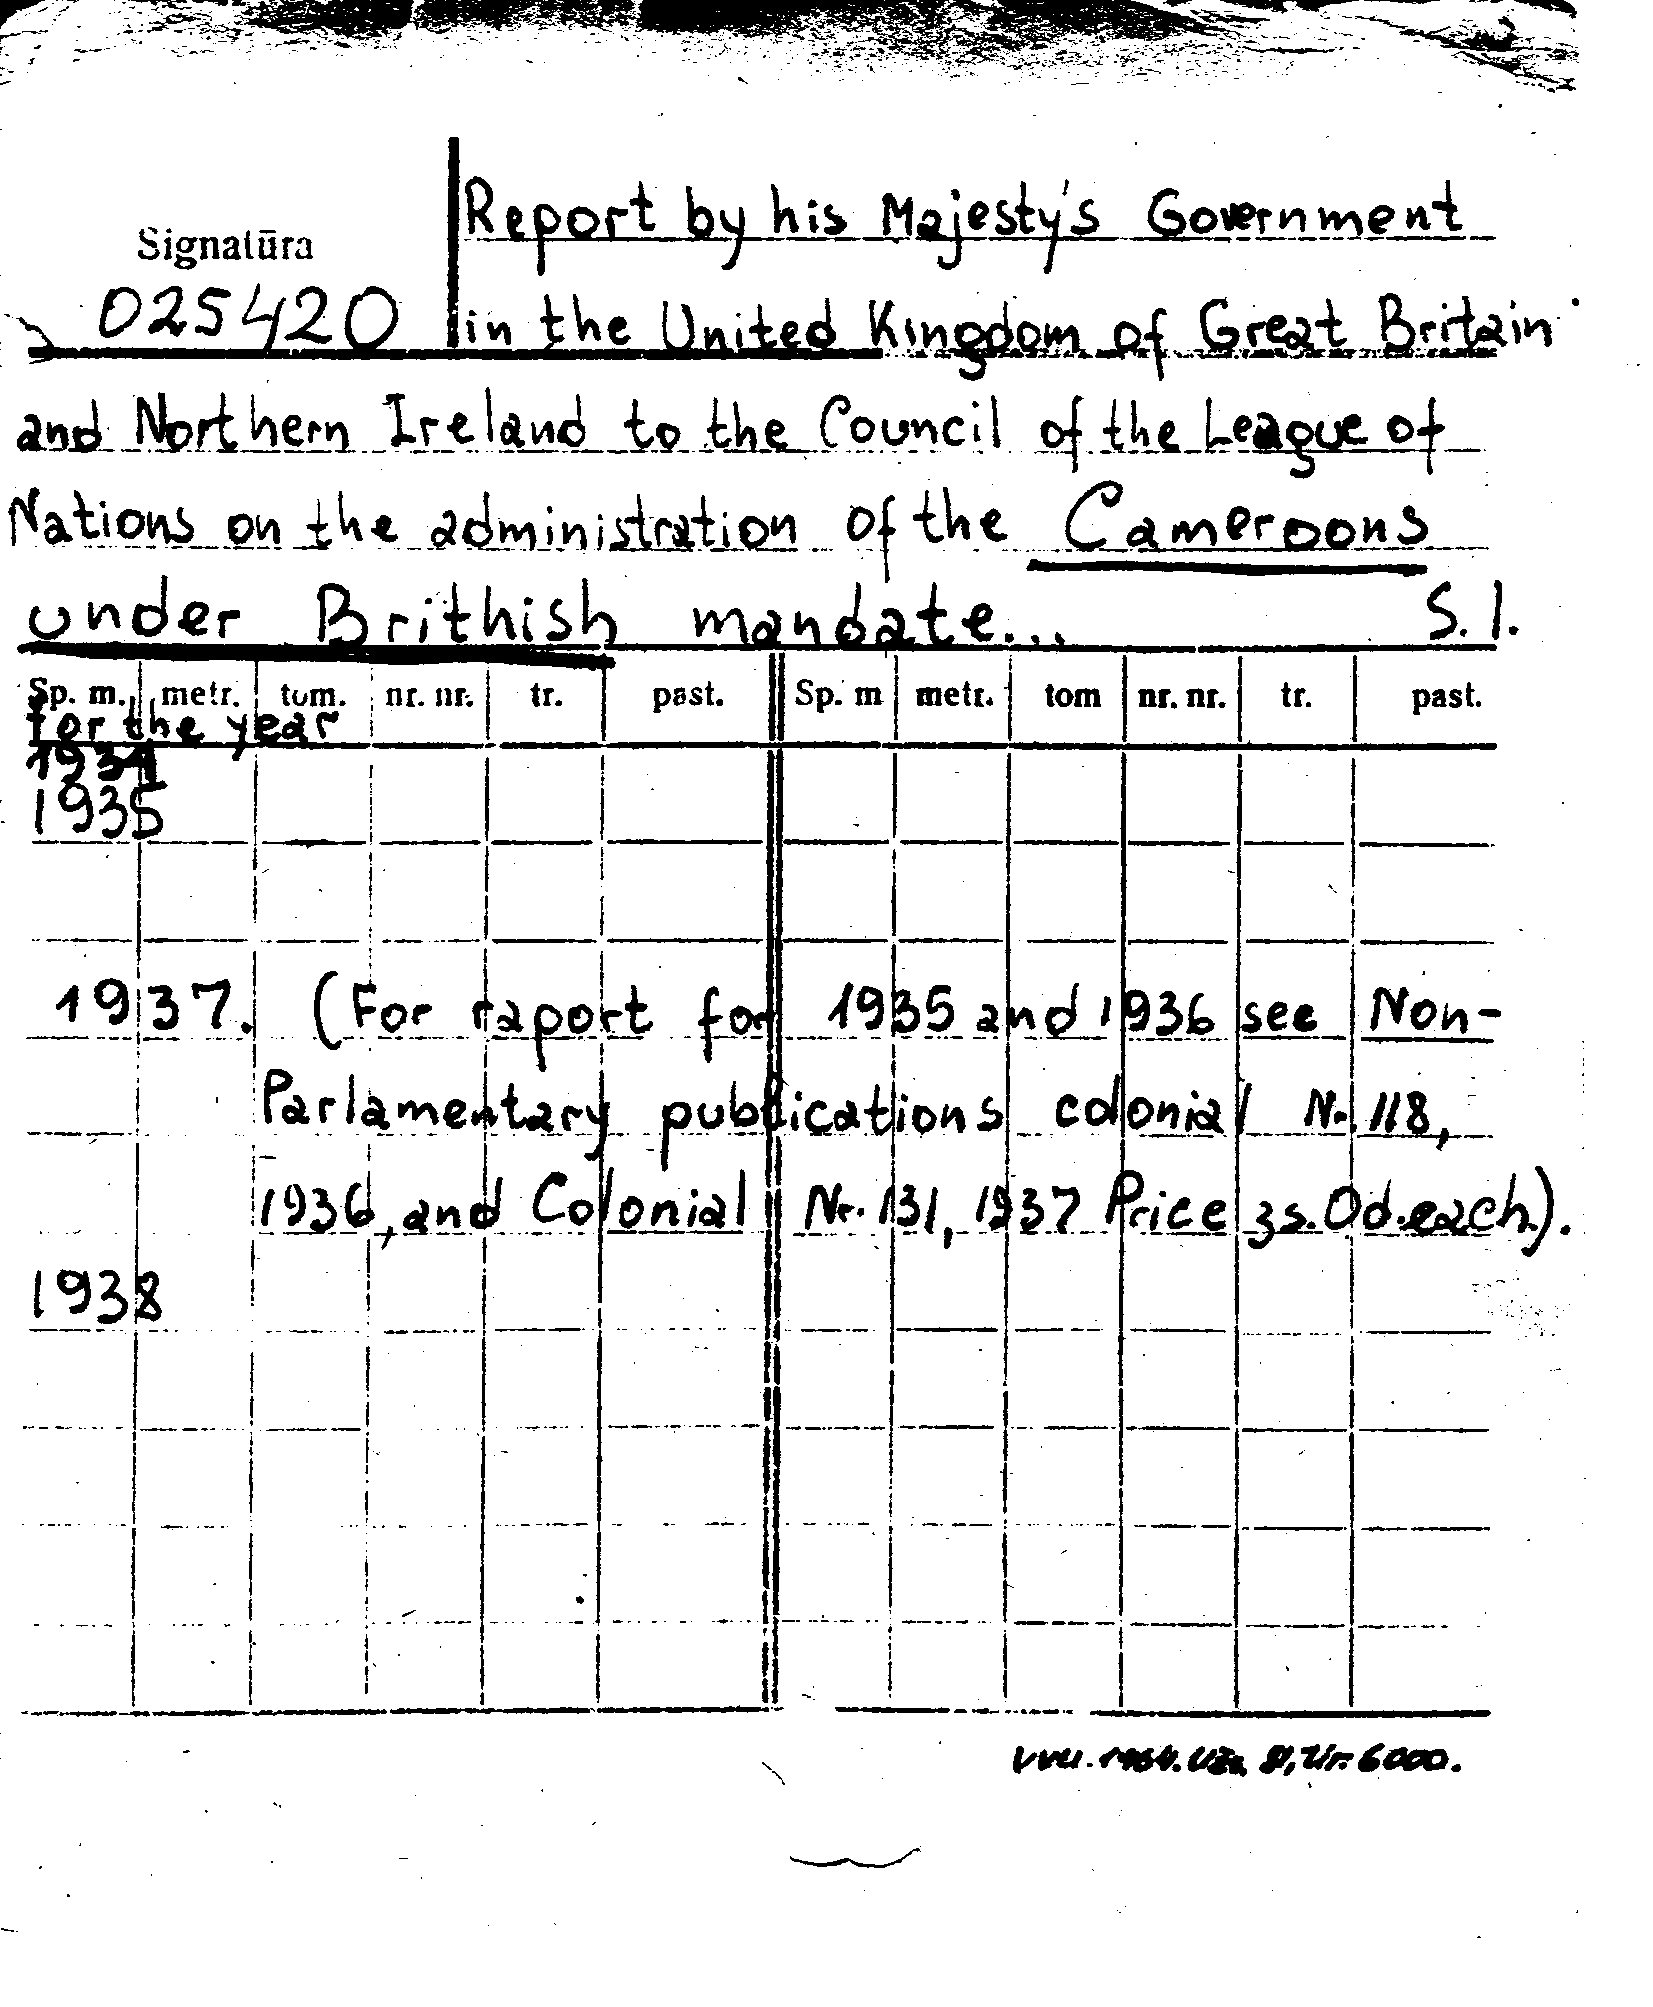 Report by his Majesty's Government
Signatūra
025420
in the United Kingdom of Great Britain
and Northern Ireland to the Council of the League of
Nations on the administration of the Cameroons
under Brithish mandate... S. l.
Sp. m. metr. tom. nr. nr. tr. past. Sp. m metr. tom nr. nr. tr. past.
for the year
1934
1935
1937. (For raport for 1935 and 1936 see Non-
Parlamentary publications colonial Nr. 118,
1936, and Colonial Nr. 131, 1937 Price 3s. 0d. each.).
1938
VVU. 1964. Užs. 81, Tir. 6000.